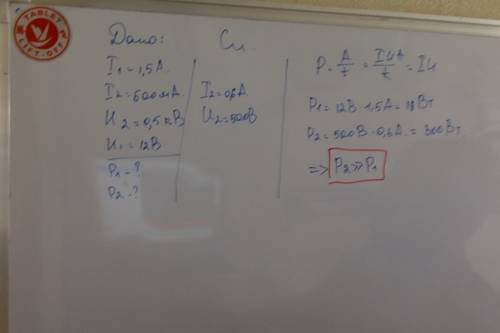 TABLET
LIFT-OFF
Дано:
I1 = 1,5 A.
I2 = 600 мA.
U2 = 0,5 кВ
U1 = 12В
P1 - ?
P2 - ?
Си
I2 = 0,6 A.
U2 = 500В
P = A/t = IUt/t = IU
P1 = 12В · 1,5A = 18 Вт
P2 = 500В · 0,6A = 300 Вт
=> P2 >> P1